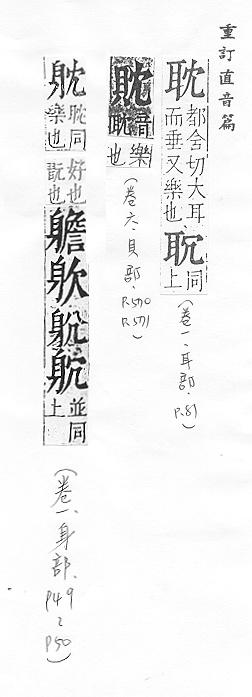 重訂直音篇
耽 都含切大耳而垂又樂也 耽 同上
(卷一、耳部、P.81)
躭 音耽樂也
(卷六、貝部、P.570 P.571)
躭 耽同樂也 好也翫也 並同上
(卷一、身部、P49~P50)